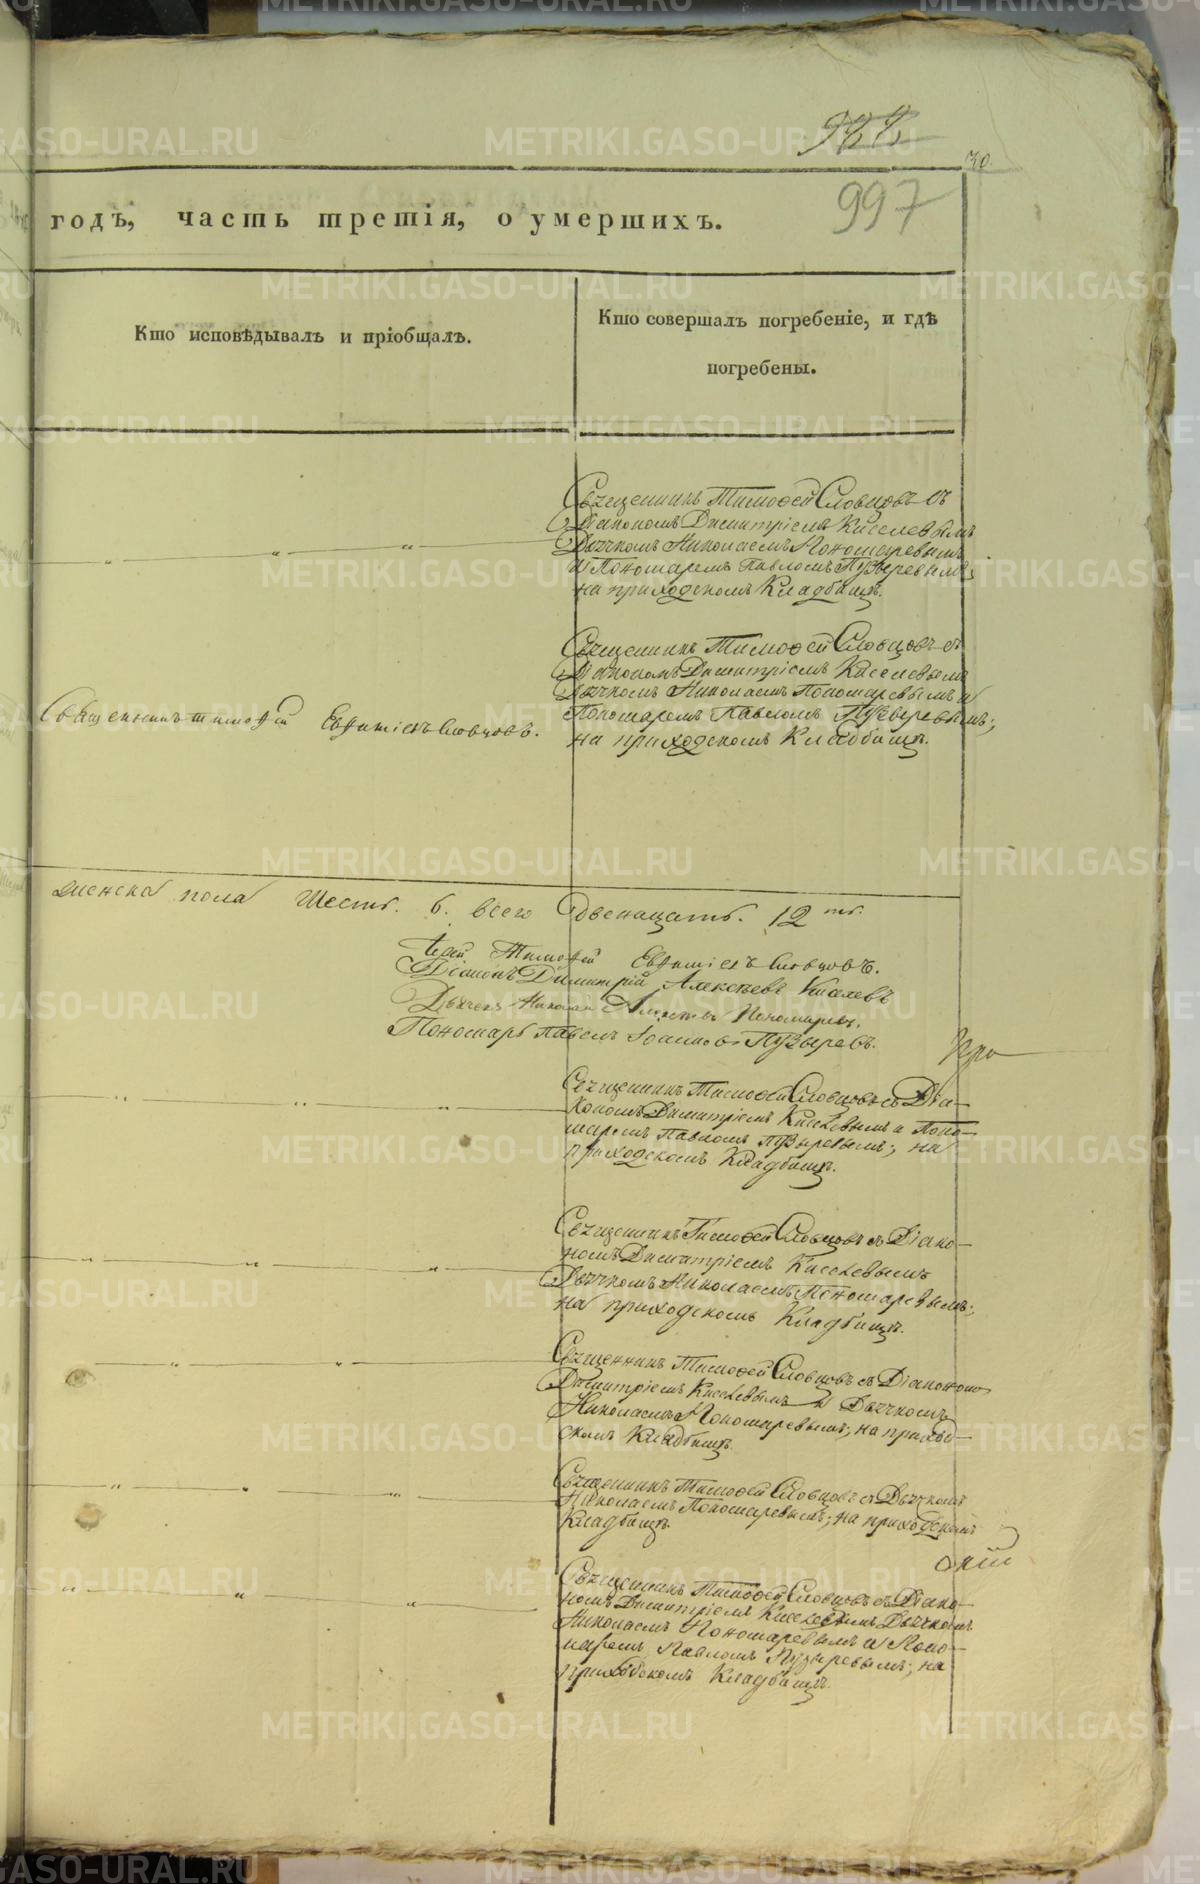 997
30.
годъ, часть третія, о умершихъ.
Кто исповѣдывалъ и пріобщалъ.
Кто совершалъ погребеніе, и гдѣ
погребены.
Священникъ Тимофей Словцовъ съ
Діакономъ Димитріемъ Киселевымъ
Дьячкомъ Николаемъ Пономаревымъ
и Пономаремъ Павломъ Пузыревымъ;
на приходскомъ Кладбищѣ.
Священникъ Тимофей Словцовъ съ
Діакономъ Димитріемъ Киселевымъ
Дьячкомъ Николаемъ Пономаревымъ и
Пономаремъ Павломъ Пузыревымъ;
на приходскомъ Кладбищѣ.
Священникъ Тимофей Евфиміевъ Словцовъ.
женска пола Шесть. 6. всего Двенацать. 12 ть.
Іерей Тимофей Евфиміевъ Словцовъ.
Діаконъ Димитрій Алексѣевъ Киселевъ
Дьячекъ Николай Пономаревъ.
Пономарь Павелъ Іоанновъ Пузыревъ.
Священникъ Тимофей Словцовъ съ Діа-
кономъ Димитріемъ Киселевымъ и Поно-
маремъ Павломъ Пузыревымъ; на
приходскомъ Кладбищѣ.
Священникъ Тимофей Словцовъ съ Діако-
номъ Димитріемъ Киселевымъ
Дьячкомъ Николаемъ Пономаревымъ;
на приходскомъ Кладбищѣ.
Священникъ Тимофей Словцовъ съ Діакономъ
Димитріемъ Киселевымъ и Дьячкомъ
Николаемъ Пономаревымъ; на приход-
скомъ Кладбищѣ.
Священникъ Тимофей Словцовъ съ Дьячкомъ
Николаемъ Пономаревымъ; на приходскомъ
Кладбищѣ.
Священникъ Тимофей Словцовъ съ Діако-
номъ Димитріемъ Киселевымъ Дьячкомъ
Николаемъ Пономаревымъ и Поно-
маремъ Павломъ Пузыревымъ; на
приходскомъ Кладбищѣ.
METRIKI.GASO-URAL.RU